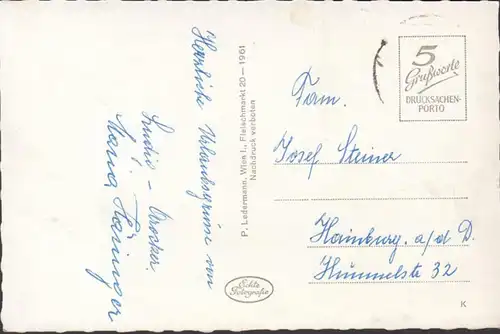 Herzliche Urlaubsgrüsse von
Maria
P. Ledermann, Wien I., Fleischmarkt 20—1961
Nachdruck verboten
Echte
Fotografie
5
Grußworte
DRUCKSACHEN-
PORTO
Fam.
Josef Steiner
Hainburg. a/d D.
Hummelstr 32
K